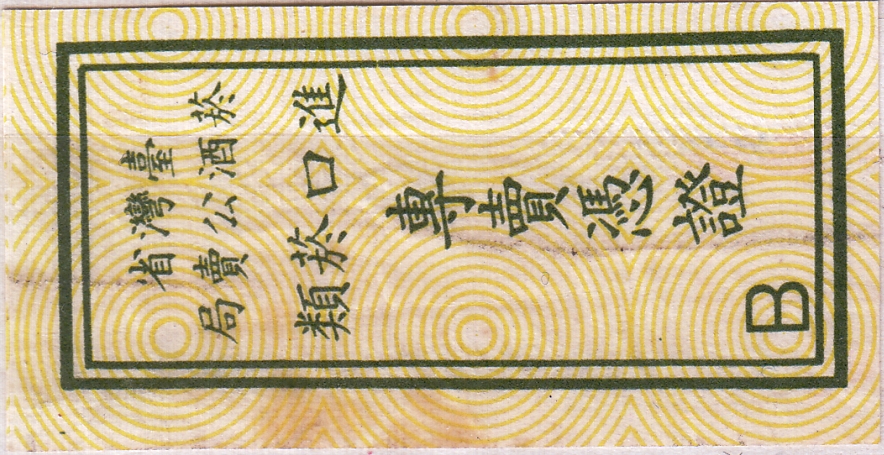 臺灣省
菸酒公賣局
進口菸類
專賣憑證
B